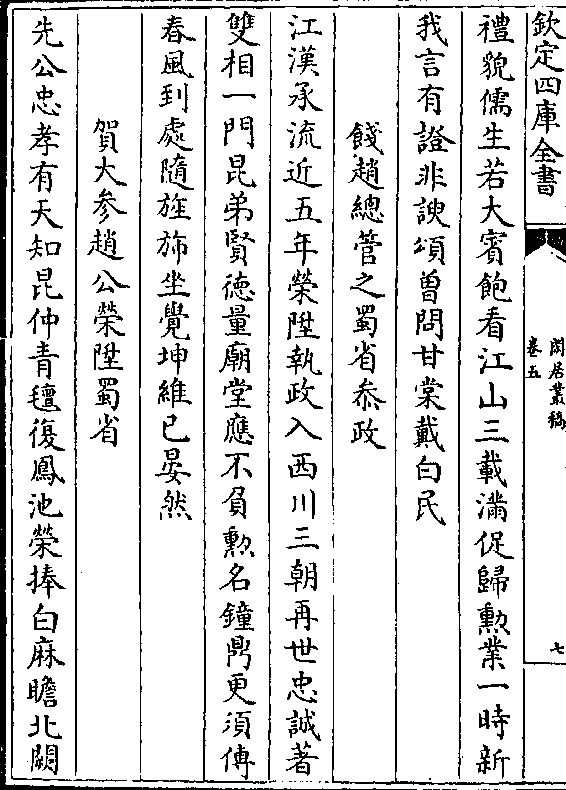 欽定四庫全書
閑居叢稿
卷五
七
禮貌儒生若大賓飽看江山三載滿促歸勲業一時新
我言有證非諛頌曽問甘棠戴白民
餞趙總管之蜀省叅政
江漢承流近五年榮陞執政入西川三朝再世忠誠著
雙相一門昆弟賢徳量廟堂應不負勲名鐘鼎更須傳
春風到處隨旌斾坐覺坤維已晏然
賀大參趙公榮陞蜀省
先公忠孝有天知昆仲青氊復鳳池榮捧白麻瞻北闕